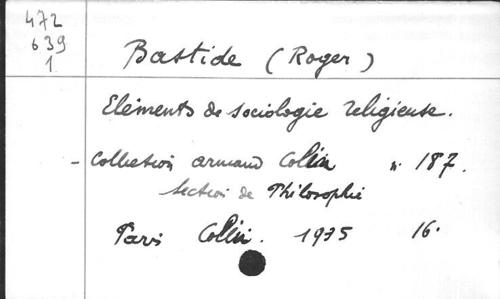 472
639
1
Bastide (Roger)
Eléments de sociologie religieuse.
- Collection armand Colin n. 187.
Section de Philosophie
Paris Colin. 1935 16.